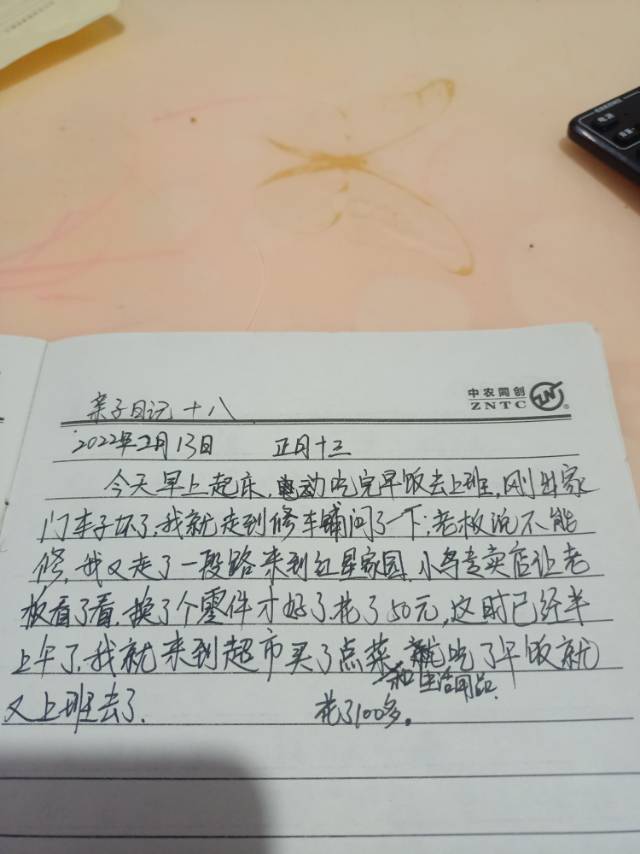 中农同创
ZNTC
亲子日记 十八
2022年2月13日 正月十三
今天早上起床,电动吃完早饭去上班,刚出家
门车子坏了,我就走到修车铺问了一下,老板说不能
修,我又走了一段路来到红星家园,小鸟专卖店让老
板看了看,换了个零件才好了,花了50元,这时已经半
上午了,我就来到超市买了点菜 就吃了午饭就
和生活用品
又上班去了. 花了100多。